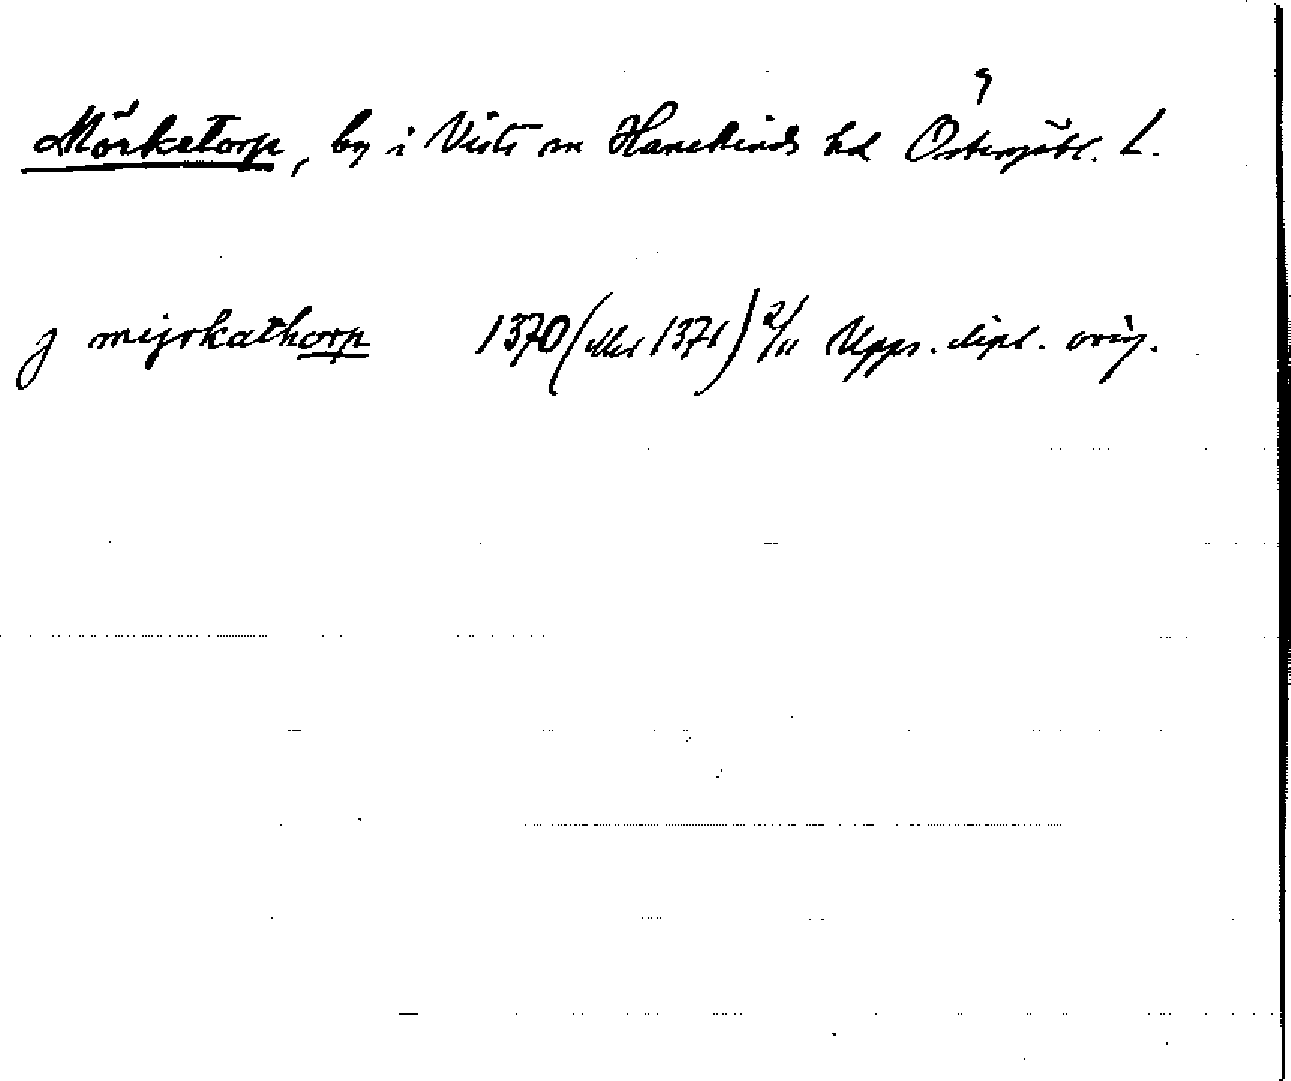 Mörketorp, by i Vists sn Hanekinds hd Östergötl. L.
j mijrkathorp 1370 (eller 1371) 2/11 Upps. dipl. orig.